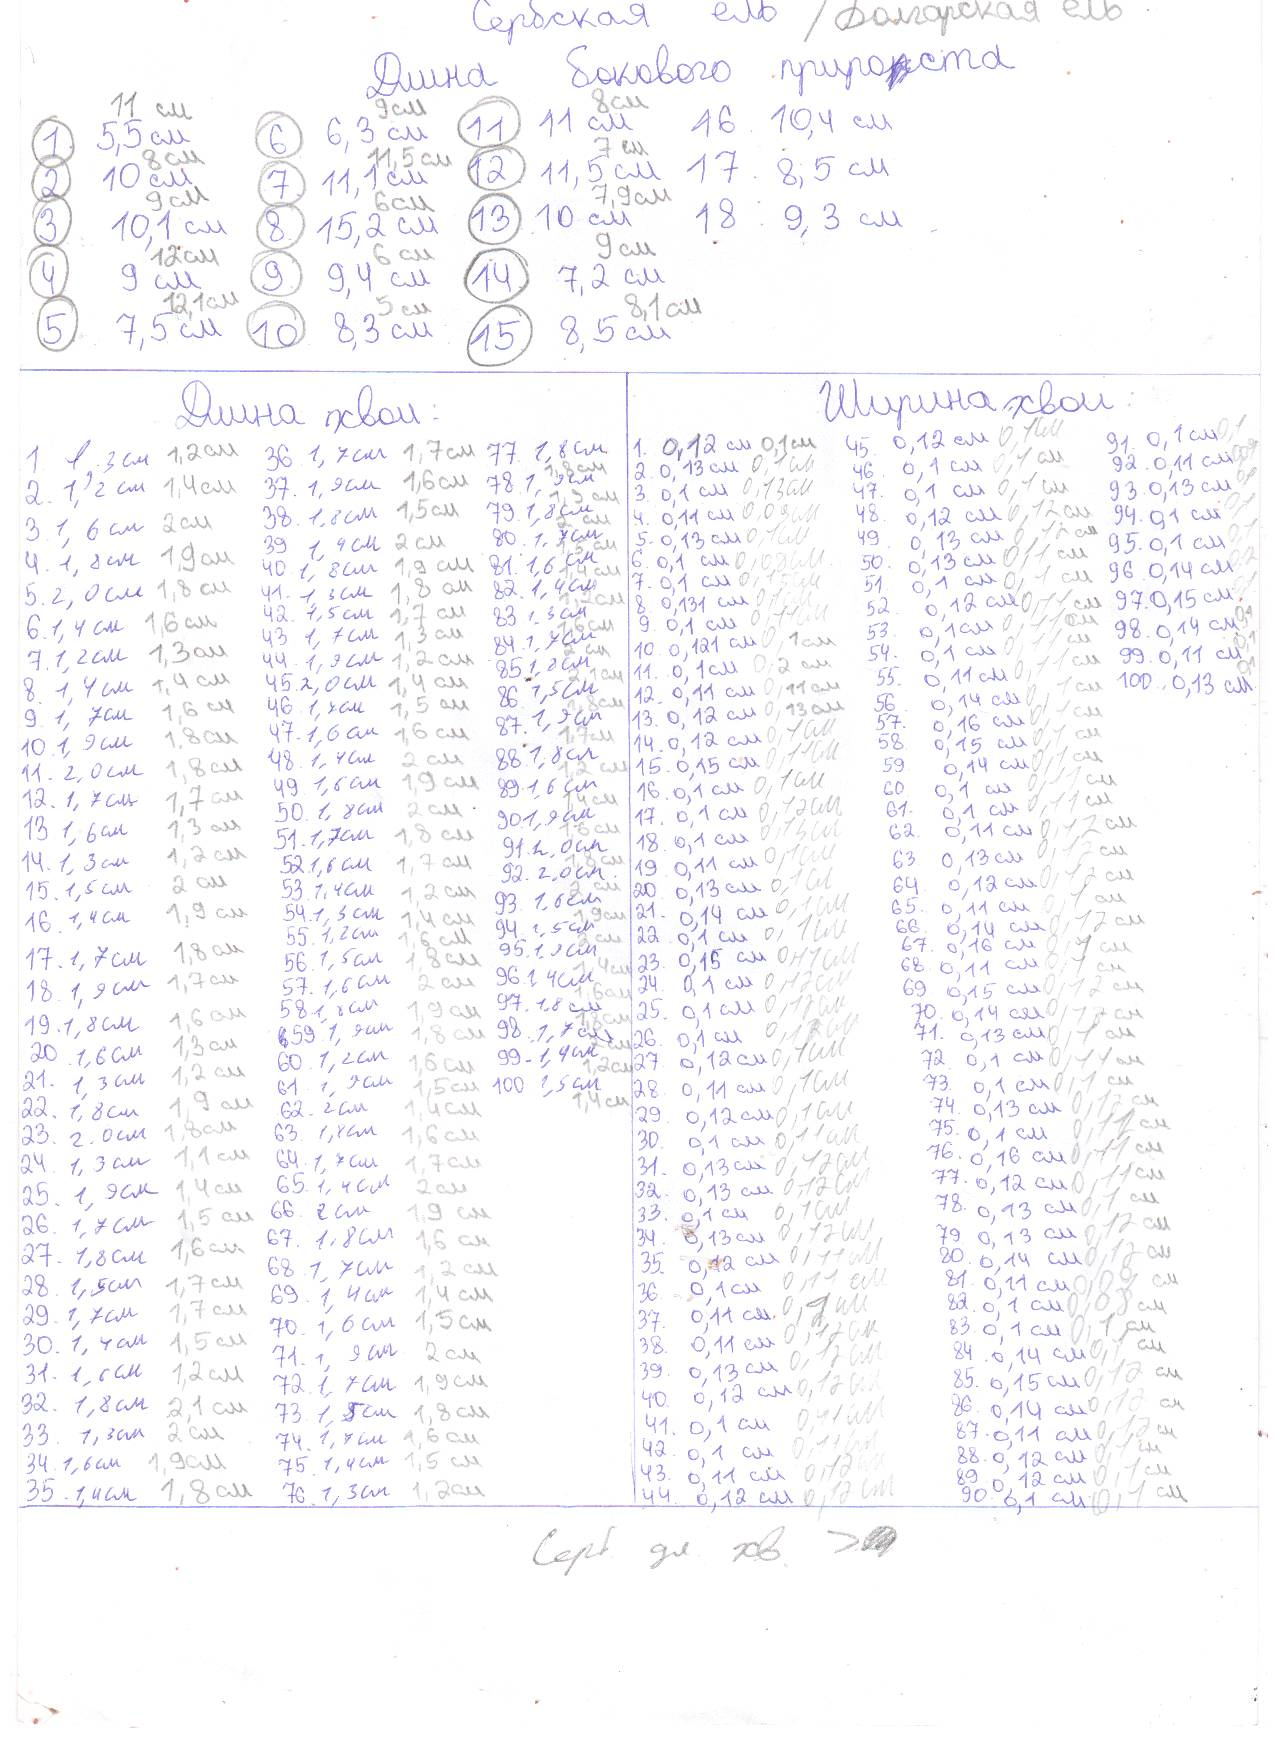 Сербская ель / Болгарская ель
Длина бокового прироста
11 см 9см 8см
1 5,5 см 6 6,3 см 11 11 см 16. 10,4 см
8см 11,5см 7 см
2 10 см 7 11,1 см 12 11,5 см 17. 8,5 см
9см 6см 7,9см
3 10,1 см 8 15,2 см 13 10 см 18. 9,3 см
12см 6 см 9см
4 9 см 9 9,4 см 14 7,2 см
12,1см 5 см 8,1см
5 7,5 см 10 8,3 см 15 8,5 см
Длина хвои:
1 1,3см 1,2см
2. 1,2 см 1,4см
3. 1,6 см 2см
4. 1,8см 1,9см
5. 2,0см 1,8 см
6. 1,4 см 1,6см
7. 1,2см 1,3см
8. 1,4см 1,4см
9. 1,7см 1,6см
10. 1,9см 1,8см
11. 2,0см 1,8см
12. 1,7см 1,7см
13 1,6см 1,3см
14. 1,3см 1,2см
15. 1,5см 2 см
16. 1,4см 1,9см
17. 1,7см 1,8см
18. 1,9см 1,7см
19. 1,8см 1,6см
20. 1,6см 1,3см
21. 1,3см 1,2см
22. 1,8см 1,9см
23. 2,0см 1,8см
24. 1,3см 1,1см
25. 1,9см 1,4см
26. 1,7см 1,5см
27. 1,8см 1,6см
28. 1,5см 1,7см
29. 1,7см 1,7см
30. 1,4см 1,5см
31. 1,6см 1,2см
32. 1,8см 2,1см
33. 1,3см 2см
34. 1,6см 1,9см
35. 1,4см 1,8см
36 1,7см 1,7см
37. 1,9см 1,6см
38. 1,8см 1,5см
39 1,4см 2см
40 1,8см 1,9см
41. 1,3см 1,8 см
42. 1,5см 1,7см
43 1,7см 1,3см
44. 1,9см 1,2см
45. 2,0см 1,4см
46 1,5см
47. 1,6см 1,6см
48. 1,4см 2см
49 1,6см 1,9см
50. 1,8см 2см
51. 1,7см 1,8см
52. 1,6см 1,7см
53. 1,4см 1,2см
54. 1,3см 1,4см
55. 1,2см 1,6см
56. 1,5см 1,8см
57. 1,6см 2см
58 1,9см
59. 1,9см 1,8см
60. 1,2см 1,6см
61. 1,9см 1,5см
62. 2см 1,4см
63. 1,6см
64. 1,7см 1,7см
65. 1,4см 2см
66. 2см 1,9см
67. 1,8см 1,6см
68. 1,7см 1,2см
69. 1,4см 1,4см
70. 1,6см 1,5см
71. 1,9см 2см
72. 1,7см 1,9см
73. 1,5см 1,8см
74. 1,6см
75. 1,4см 1,5см
76. 1,3см 1,2см
77 1,8см
78. 1,9см
79. 1,8см
80. 1,7см
81. 1,6см
82. 1,4см
83 1,3см
84. 1,7см
85. 1,2см
86 1,5см
87. 1,9см
88. 1,8см
89. 1,6см
90 1,9см
91. 2,0см
92. 2,0см
93. 1,6см
94. 1,5см
95. 1,9см
96. 1,4см
97. 1,8см
98. 1,7см
99. 1,4см
100 1,5см
1,4см
Ширина хвои:
1. 0,12 см 0,1см
2. 0,13 см 0,1см
3. 0,1 см 0,13см
4. 0,11 см
5. 0,13см 0,1см
6. 0,1 см 0,08см
7. 0,1 см
8. 0,131 см
9. 0,1 см 0,11см
10. 0,121 см 0,1см
11. 0,1см 0,2 см
12. 0,11 см 0,11см
13. 0,12 см 0,13см
14. 0,12 см 0,1см
15. 0,15см 0,11см
16. 0,1см 0,1см
17. 0,1 см 0,12см
18. 0,1 см
19 0,11 см 0,1см
20 0,13 см 0,1см
21. 0,14 см 0,1см
22. 0,1 см 0,1см
23. 0,15 см
24. 0,1 см 0,12см
25. 0,1см 0,12см
26. 0,1см
27. 0,12см 0,1см
28. 0,11 см 0,1см
29. 0,12см 0,1см
30. 0,1 см 0,11см
31. 0,13см 0,12см
32. 0,13 см 0,12см
33. 0,1 см 0,1см
34. 0,13см 0,12см
35. 0,12 см 0,11см
36 0,1 см 0,11см
37. 0,11 см
38. 0,11 см 0,12см
39. 0,13см 0,12см
40. 0,12 см 0,12см
41. 0,1 см 0,11см
42. 0,1 см 0,11см
43. 0,11 см 0,12см
44. 0,12 см 0,12см
45. 0,12см 0,1см
46. 0,1 см 0,1см
47. 0,1 см 0,1см
48. 0,12 см 0,12см
49. 0,13 см 0,12см
50. 0,13см 0,11см
51 0,1 см 0,1см
52. 0,12 см 0,11см
53. 0,1см 0,11см
54. 0,1 см 0,11см
55. 0,11см 0,11см
56 0,14 см 0,1см
57. 0,16 см 0,1см
58 0,15 см 0,1см
59 0,14 см 0,1см
60 0,1 см 0,11см
61. 0,1 см 0,11см
62. 0,11 см 0,12см
63 0,13см 0,12см
64. 0,12см 0,12см
65. 0,11 см 0,1см
66. 0,14 см 0,12см
67. 0,16 см 0,1см
68. 0,11 см 0,1см
69 0,15 см 0,12см
70. 0,14 см 0,12см
71. 0,13см 0,1см
72. 0,1 см 0,11см
73. 0,1 см 0,1см
74. 0,13см 0,12см
75. 0,1 см 0,11см
76. 0,16 см 0,11см
77. 0,12 см 0,11см
78. 0,13 см 0,1см
79 0,13 см 0,12см
80. 0,14 см 0,12см
81. 0,11 см 0,09см
82. 0,1 см
83. 0,1 см 0,1см
84. 0,14 см 0,1см
85. 0,15см 0,12см
86. 0,14 см 0,12см
87. 0,11 см 0,12см
88. 0,12 см 0,1см
89. 0,12 см 0,1см
90. 0,1 см 0,1см
91. 0,1 см 0,1
92. 0,11 см
93. 0,13 см
94. 0,1 см 0,1
95. 0,1 см 0,1
96. 0,14 см 0,2
97. 0,15 см 0,1
98. 0,14 см 0,1
99. 0,11 см 0,1
100. 0,13 см
Серб дл. хв. >